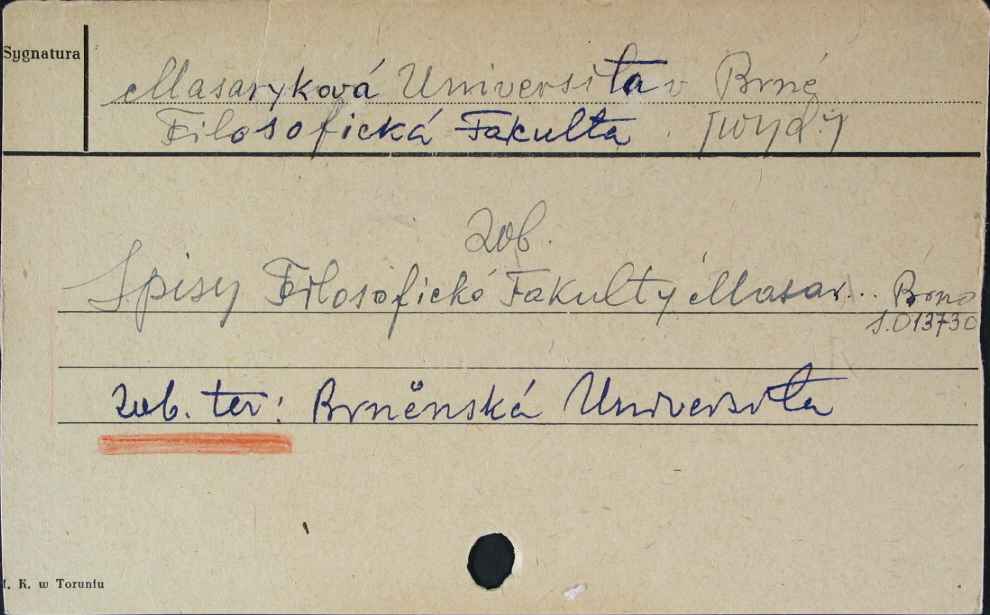 Sygnatura
Masaryková Universita v Brně
Filosofická Fakulta.
Zob.
Spisy Filosofické Fakulty Masar... Brno
S.013730
Zob. ter: Brněnská Universita
K. w Toruniu